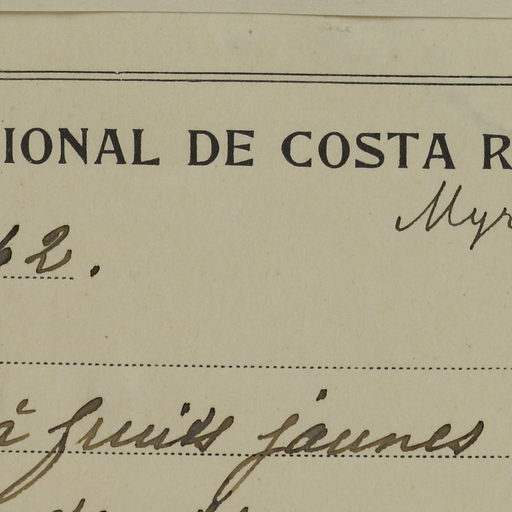 IONAL DE COSTA R
Myr
62.
à fruits jaunes